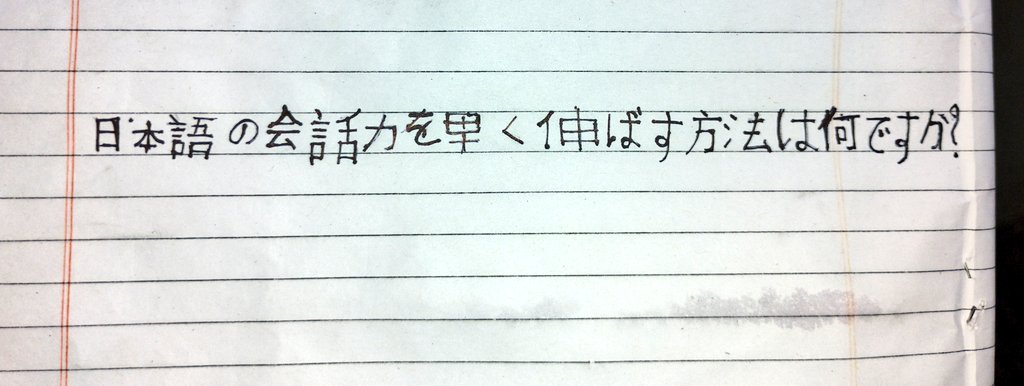 日本語の会話力を早く伸ばす方法は何ですか?